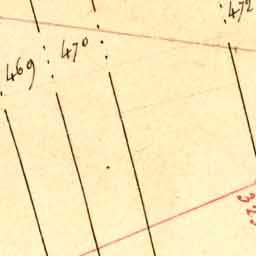 469
470
472